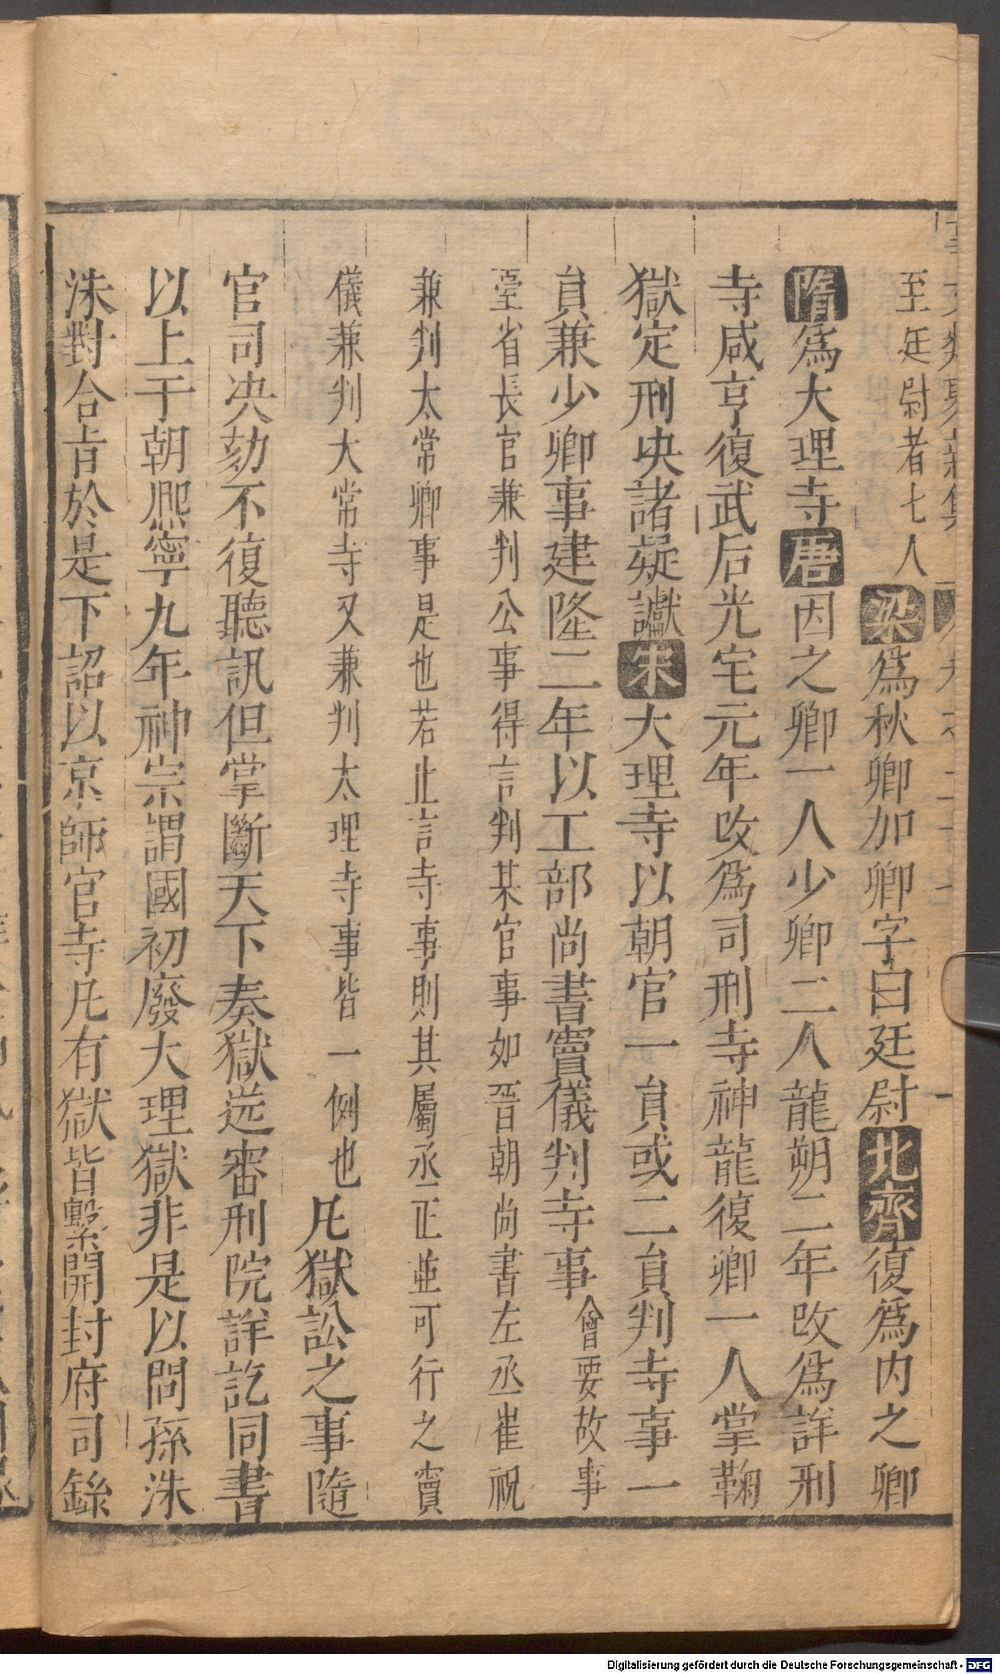 至廷尉者七人梁為秋卿加卿字曰廷尉北齊復為内之卿
隋為大理寺唐因之卿一人少卿二人龍朔二年改為詳刑
寺咸亨復武后光宅元年改為司刑寺神龍復卿一人掌鞠
獄定刑决諸疑讞宋大理寺以朝官一貟或二貟判寺事一
貟兼少卿事建隆二年以工部尚書竇儀判寺事會要故事
臺省長官兼判公事得言判某官事如晉朝尚書左丞崔祝
兼判太常卿事是也若止言寺事則其屬丞正並可行之竇
儀兼判大常寺又兼判太理寺事皆一例也凡獄訟之事隨
官司决劾不復聽訊但掌斷天下奏獄送審刑院詳訖同書
以上于朝熈寧九年神宗謂國初廢大理獄非是以問孫洙
洙對合旨於是下詔以京師官寺凡有獄皆繫開封府司錄
Digitalisierung gefördert durch die Deutsche Forschungsgemeinschaft - DFG